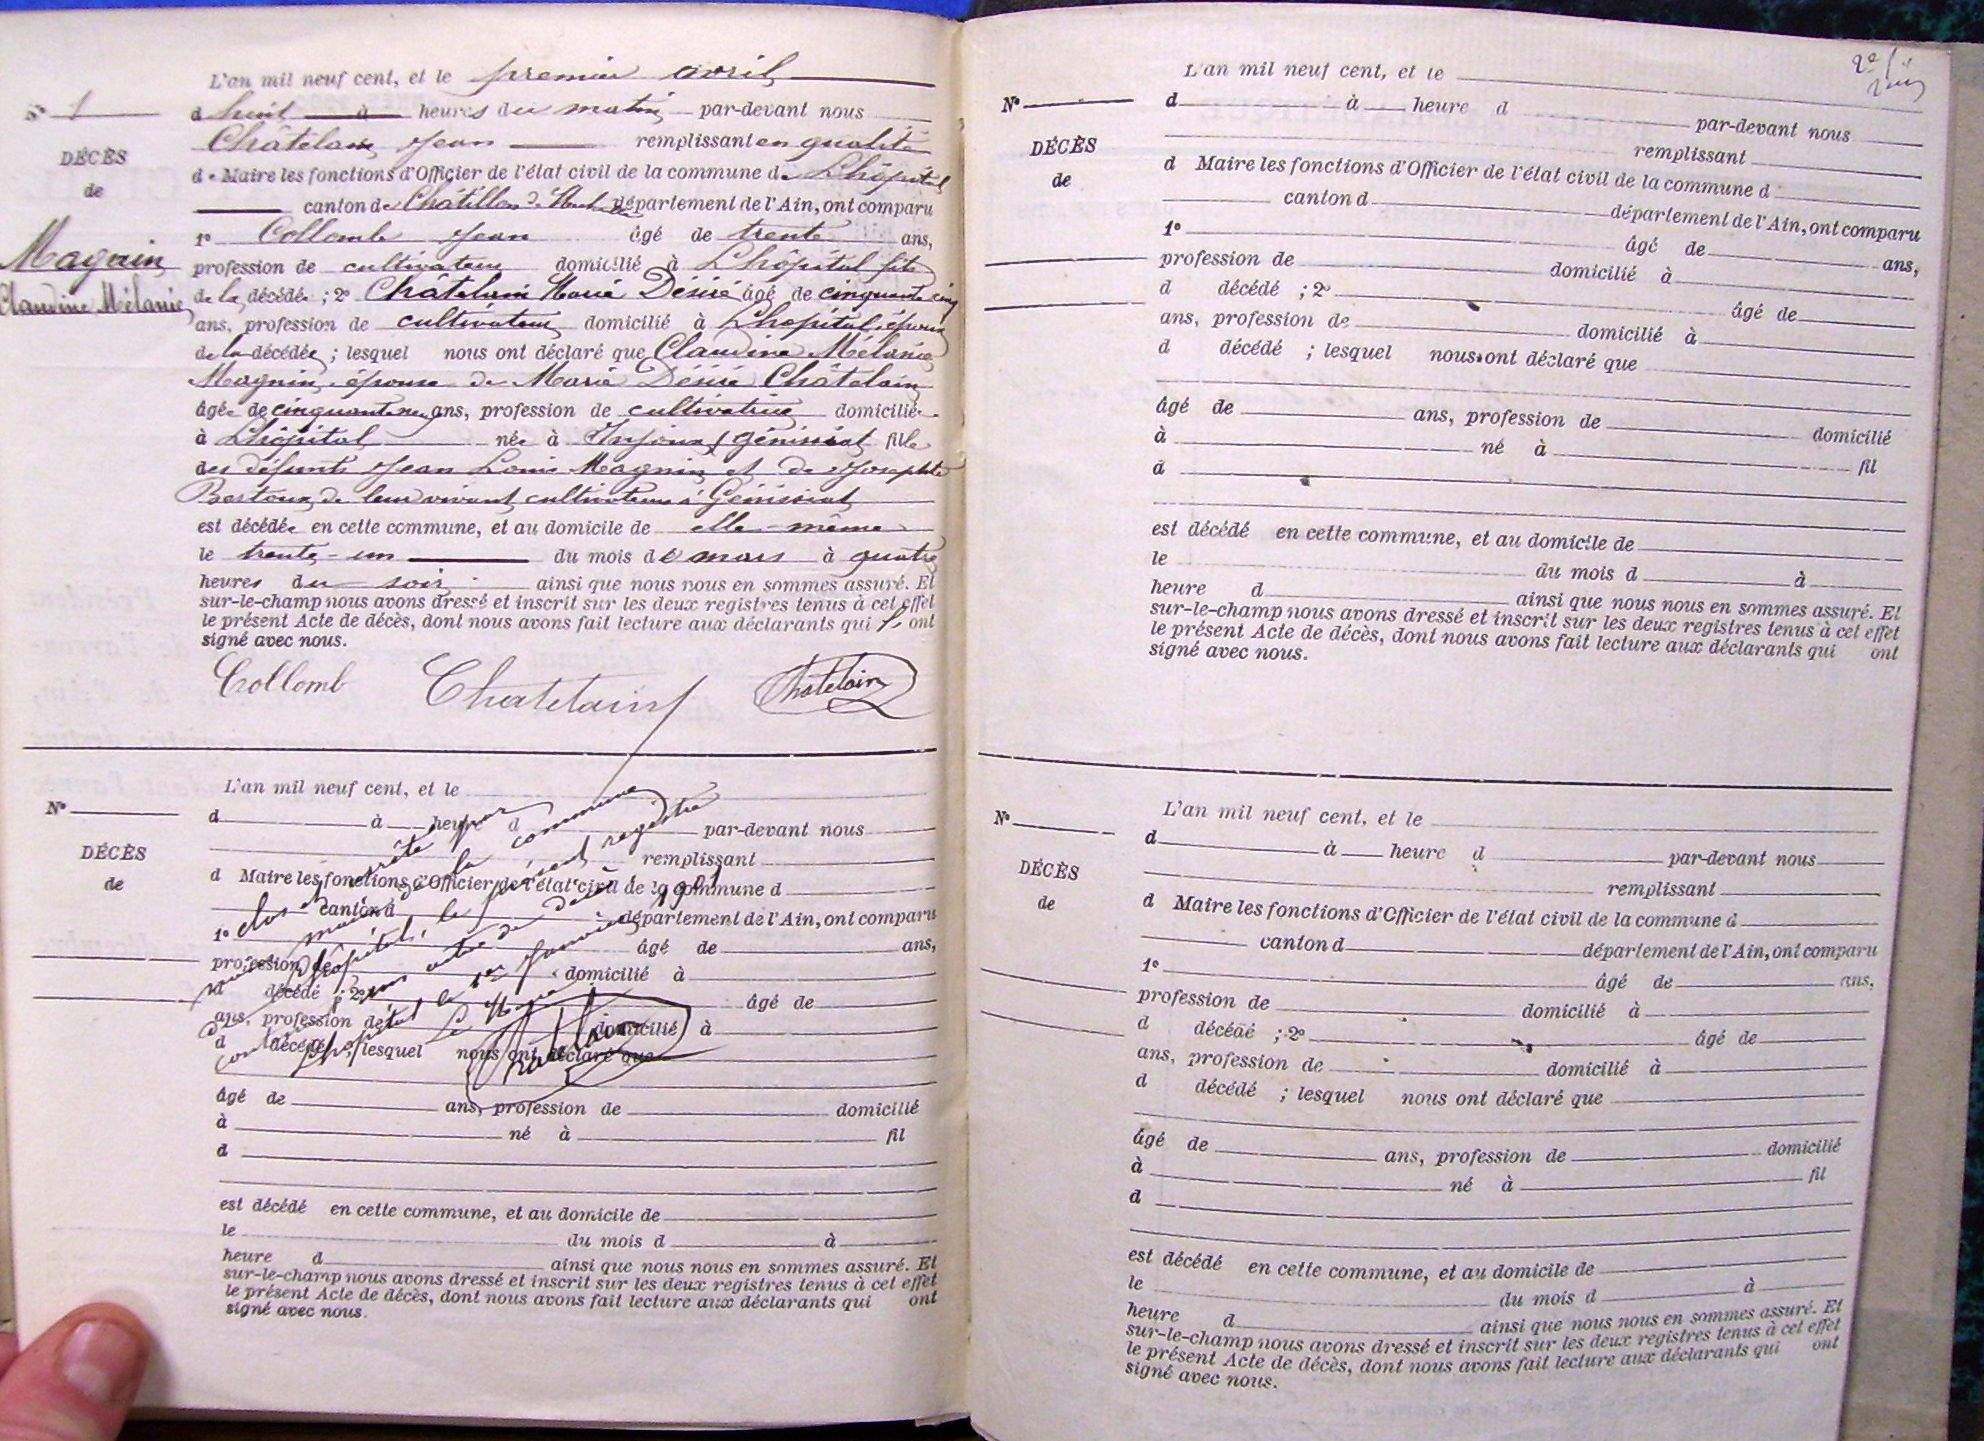 L'an mil neuf cent, et le premier avril
N° 1
à huit heures du matin par-devant nous
DÉCÈS
Châtelain Jean remplissant en qualité
de
de Maire les fonctions d'Officier de l'état civil de la commune de L'hôpital
canton de Châtillon de département de l'Ain, ont comparu
Magnin
Claudine Mélanie
1° Collomb Jean âgé de trente ans,
profession de cultivateur domicilié à L'hôpital fils
de la décédée ; 2° Châtelain Marie Désiré âgé de cinquante cinq
ans, profession de cultivateur domicilié à L'hôpital, époux
de la décédée ; lesquel nous ont déclaré que Claudine Mélanie
Magnin, épouse de Marie Désiré Châtelain
âgée de cinquante ans, profession de cultivatrice domiciliée
à L'hôpital née à Injoux Génissiat fille
des défunts Jean Louis Magnin et de Josephte
Bertoux de leur vivant cultivateurs à Génissiat
est décédée en cette commune, et au domicile de elle-même
le trente-un du mois de mars à quatre
heures du soir ainsi que nous nous en sommes assuré. Et
sur-le-champ nous avons dressé et inscrit sur les deux registres tenus à cet effet
le présent Acte de décès, dont nous avons fait lecture aux déclarants qui l'ont
signé avec nous.
Collomb Chatelain Chatelain
L'an mil neuf cent, et le
N°
d à heure d par-devant nous
DÉCÈS
remplissant
de
d Maire les fonctions d'Officier de l'état civil de la commune d
canton d département de l'Ain, ont comparu
1° âgé de ans,
profession de domicilié à
d décédé ; 2° âgé de
ans, profession de domicilié à
d décédé ; lesquel nous ont déclaré que
âgé de ans, profession de domicilié
à né à fil
d
est décédé en cette commune, et au domicile de
le du mois d à
heure d ainsi que nous nous en sommes assuré. Et
sur-le-champ nous avons dressé et inscrit sur les deux registres tenus à cet effet
le présent Acte de décès, dont nous avons fait lecture aux déclarants qui ont
signé avec nous.
clos et arrêté par
maire de la commune
L'hôpital, le présent registre
contenant un acte de décès
L'hôpital le 1er Janvier 1901
Le Maire
Chatelain
L'an mil neuf cent, et le
N°
d à heure d par-devant nous
DÉCÈS
remplissant
de
d Maire les fonctions d'Officier de l'état civil de la commune d
canton d département de l'Ain, ont comparu
1° âgé de ans,
profession de domicilié à
d décédé ; 2° âgé de
ans, profession de domicilié à
d décédé ; lesquel nous ont déclaré que
âgé de ans, profession de domicilié
à né à fil
d
est décédé en cette commune, et au domicile de
le du mois d à
heure d ainsi que nous nous en sommes assuré. Et
sur-le-champ nous avons dressé et inscrit sur les deux registres tenus à cet effet
le présent Acte de décès, dont nous avons fait lecture aux déclarants qui ont
signé avec nous.
L'an mil neuf cent, et le
N°
d à heure d par-devant nous
DÉCÈS
remplissant
de
d Maire les fonctions d'Officier de l'état civil de la commune d
canton d département de l'Ain, ont comparu
1° âgé de ans,
profession de domicilié à
d décédé ; 2° âgé de
ans, profession de domicilié à
d décédé ; lesquel nous ont déclaré que
âgé de ans, profession de domicilié
à né à fil
d
est décédé en cette commune, et au domicile de
le du mois d à
heure d ainsi que nous nous en sommes assuré. Et
sur-le-champ nous avons dressé et inscrit sur les deux registres tenus à cet effet
le présent Acte de décès, dont nous avons fait lecture aux déclarants qui ont
signé avec nous.